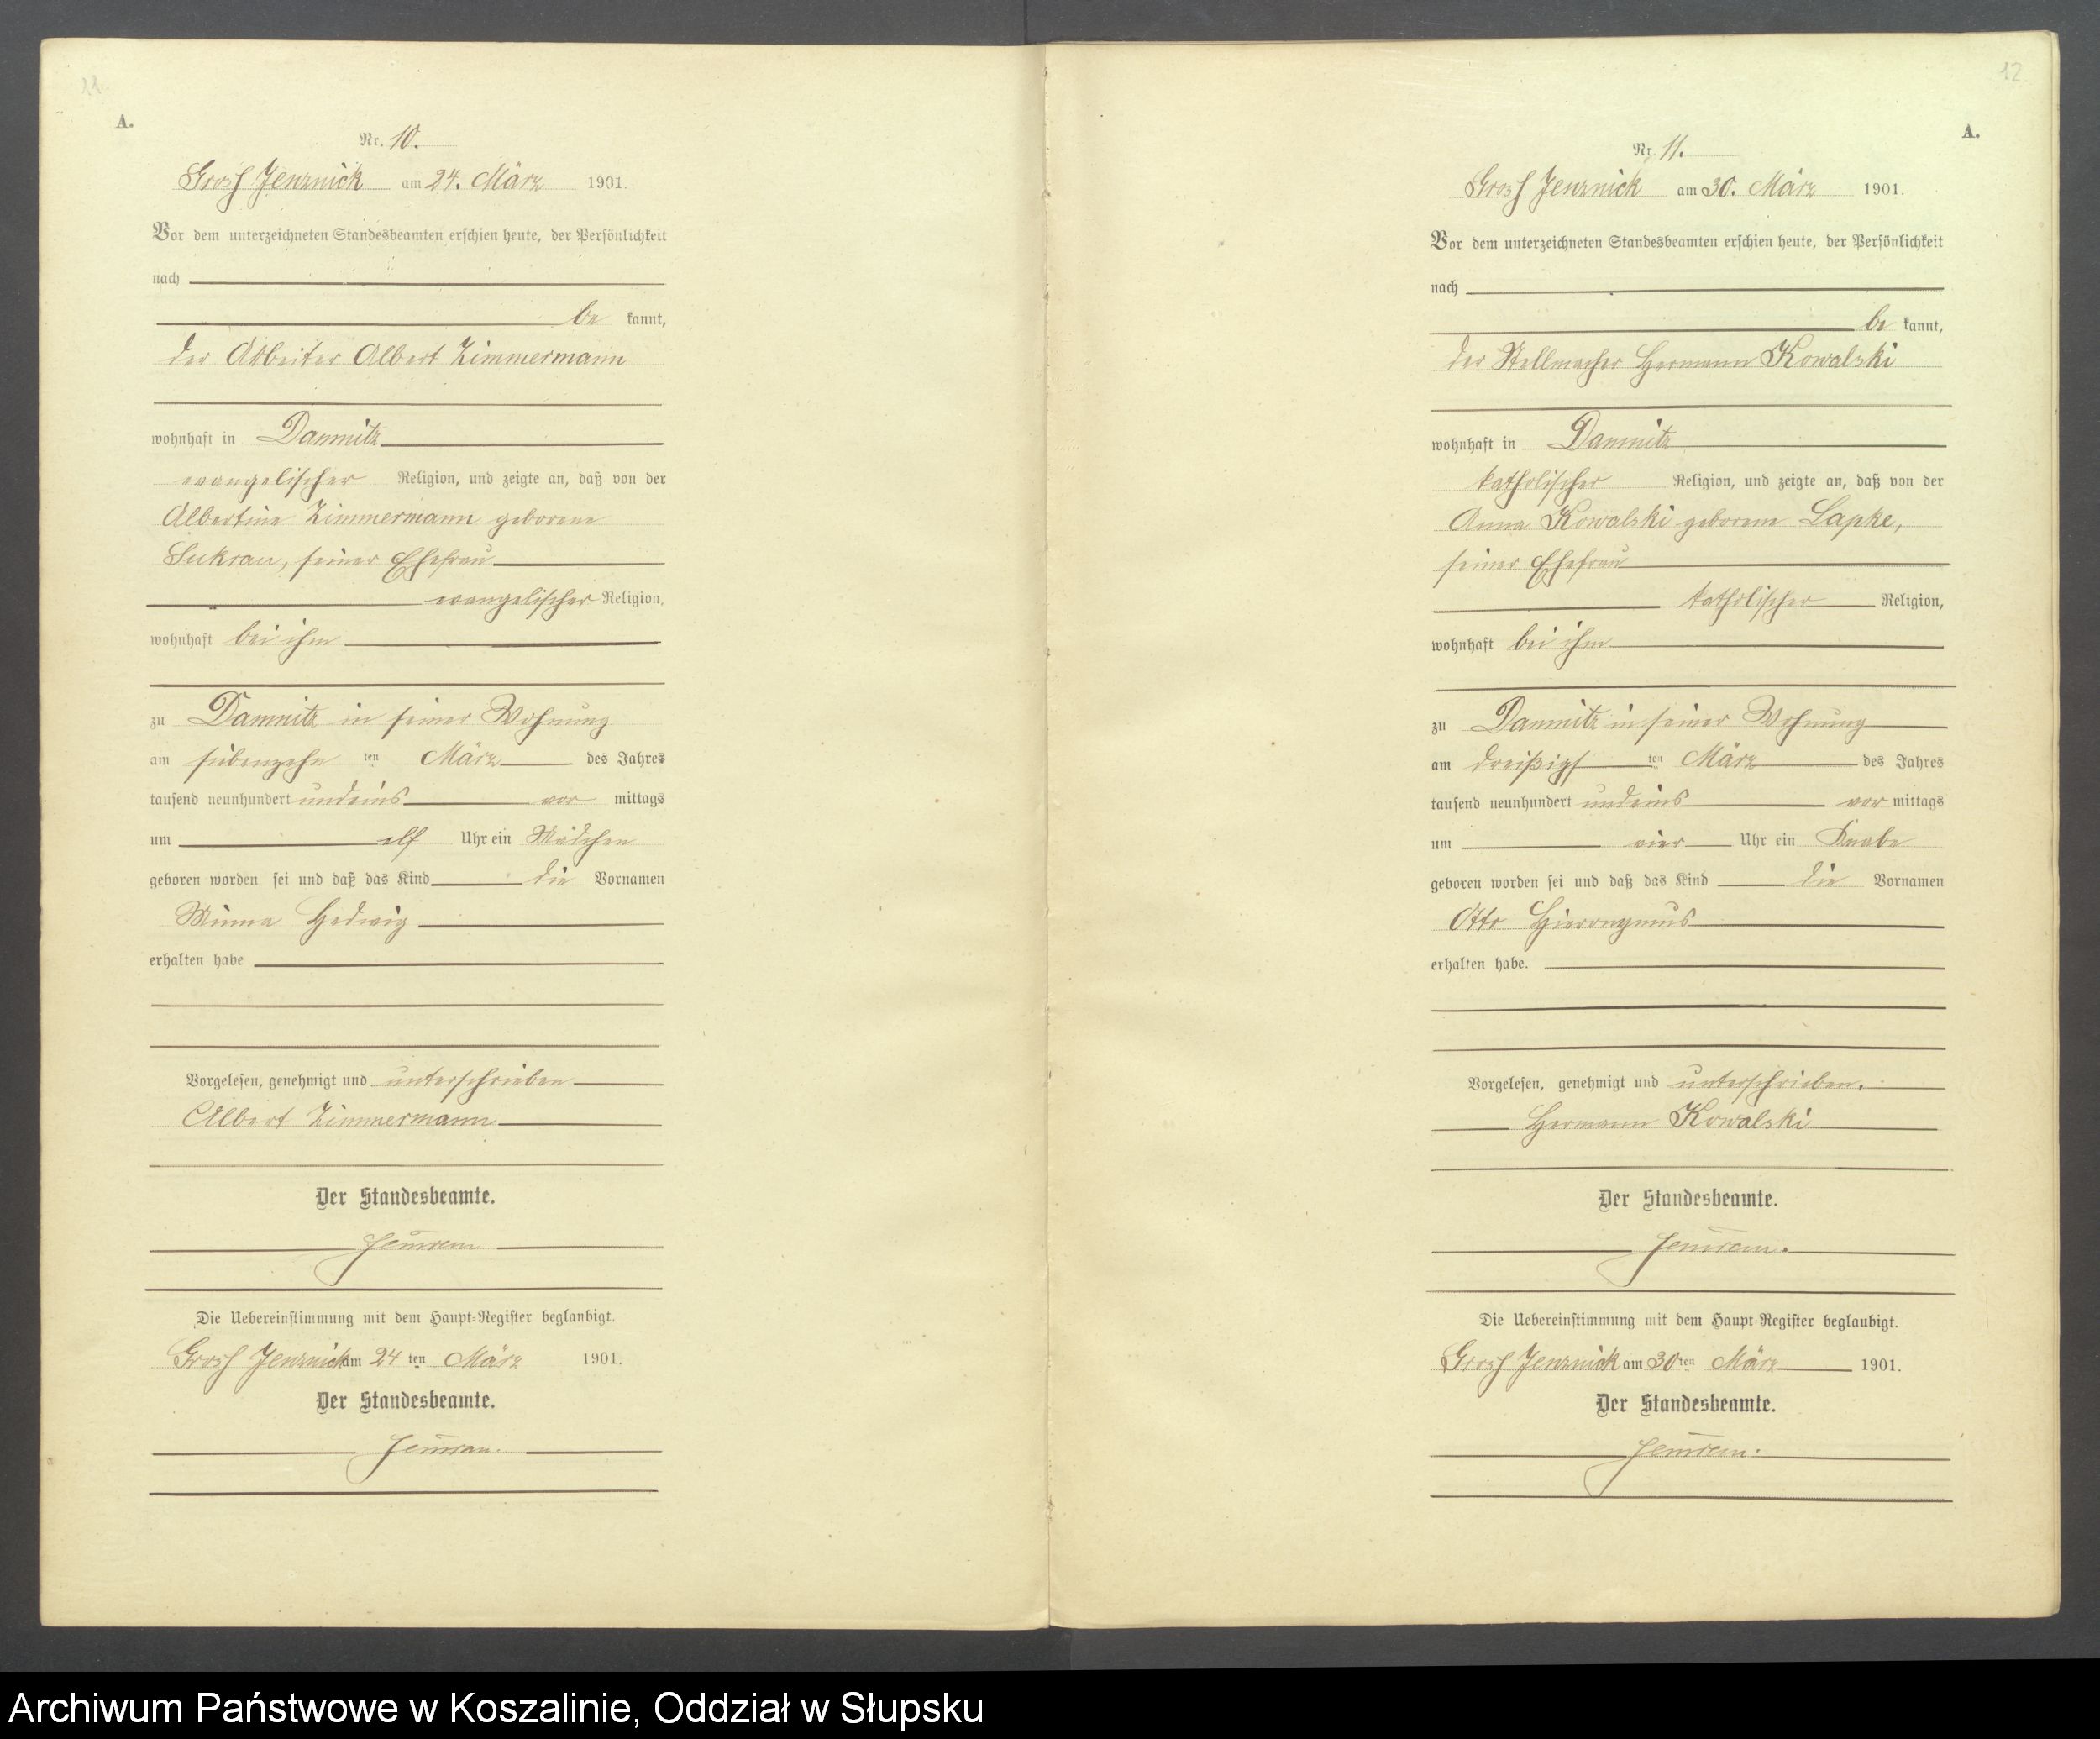 11.
A.
Nr. 10.
Gross Jenznick am 24. März 1901.
Vor dem unterzeichneten Standesbeamten erschien heute, der Persönlichkeit
nach
be kannt,
der Arbeiter Albert Zimmermann
wohnhaft in Damnitz
evangelischer Religion, und zeigte an, daß von der
Albertine Zimmermann geborene
Suckrau, seiner Ehefrau
evangelischer Religion,
wohnhaft bei ihm
zu Damnitz in seiner Wohnung
am siebenzehn ten März des Jahres
tausend neunhundert undeins vor mittags
um elf Uhr ein Mädchen
geboren worden sei und daß das Kind die Vornamen
Minna Hedwig
erhalten habe
Vorgelesen, genehmigt und unterschrieben
Albert Zimmermann
Der Standesbeamte.
Die Uebereinstimmung mit dem Haupt-Register beglaubigt.
Gross Jenznick am 24 ten März 1901.
Der Standesbeamte.
12.
A.
Nr. 11.
Gross Jenznick am 30. März 1901.
Vor dem unterzeichneten Standesbeamten erschien heute, der Persönlichkeit
nach
be kannt,
der Stellmacher Hermann Kowalski
wohnhaft in Damnitz
katholischer Religion, und zeigte an, daß von der
Anna Kowalski geborene Lapke,
seiner Ehefrau
katholischer Religion,
wohnhaft bei ihm
zu Damnitz in seiner Wohnung
am dreißigs ten März des Jahres
tausend neunhundert undeins vor mittags
um vier Uhr ein Knabe
geboren worden sei und daß das Kind die Vornamen
Otto Hieronymus
erhalten habe.
Vorgelesen, genehmigt und unterschrieben.
Hermann Kowalski
Der Standesbeamte.
Die Uebereinstimmung mit dem Haupt-Register beglaubigt.
Gross Jenznick am 30 ten März 1901.
Der Standesbeamte.
Archiwum Państwowe w Koszalinie, Oddział w Słupsku